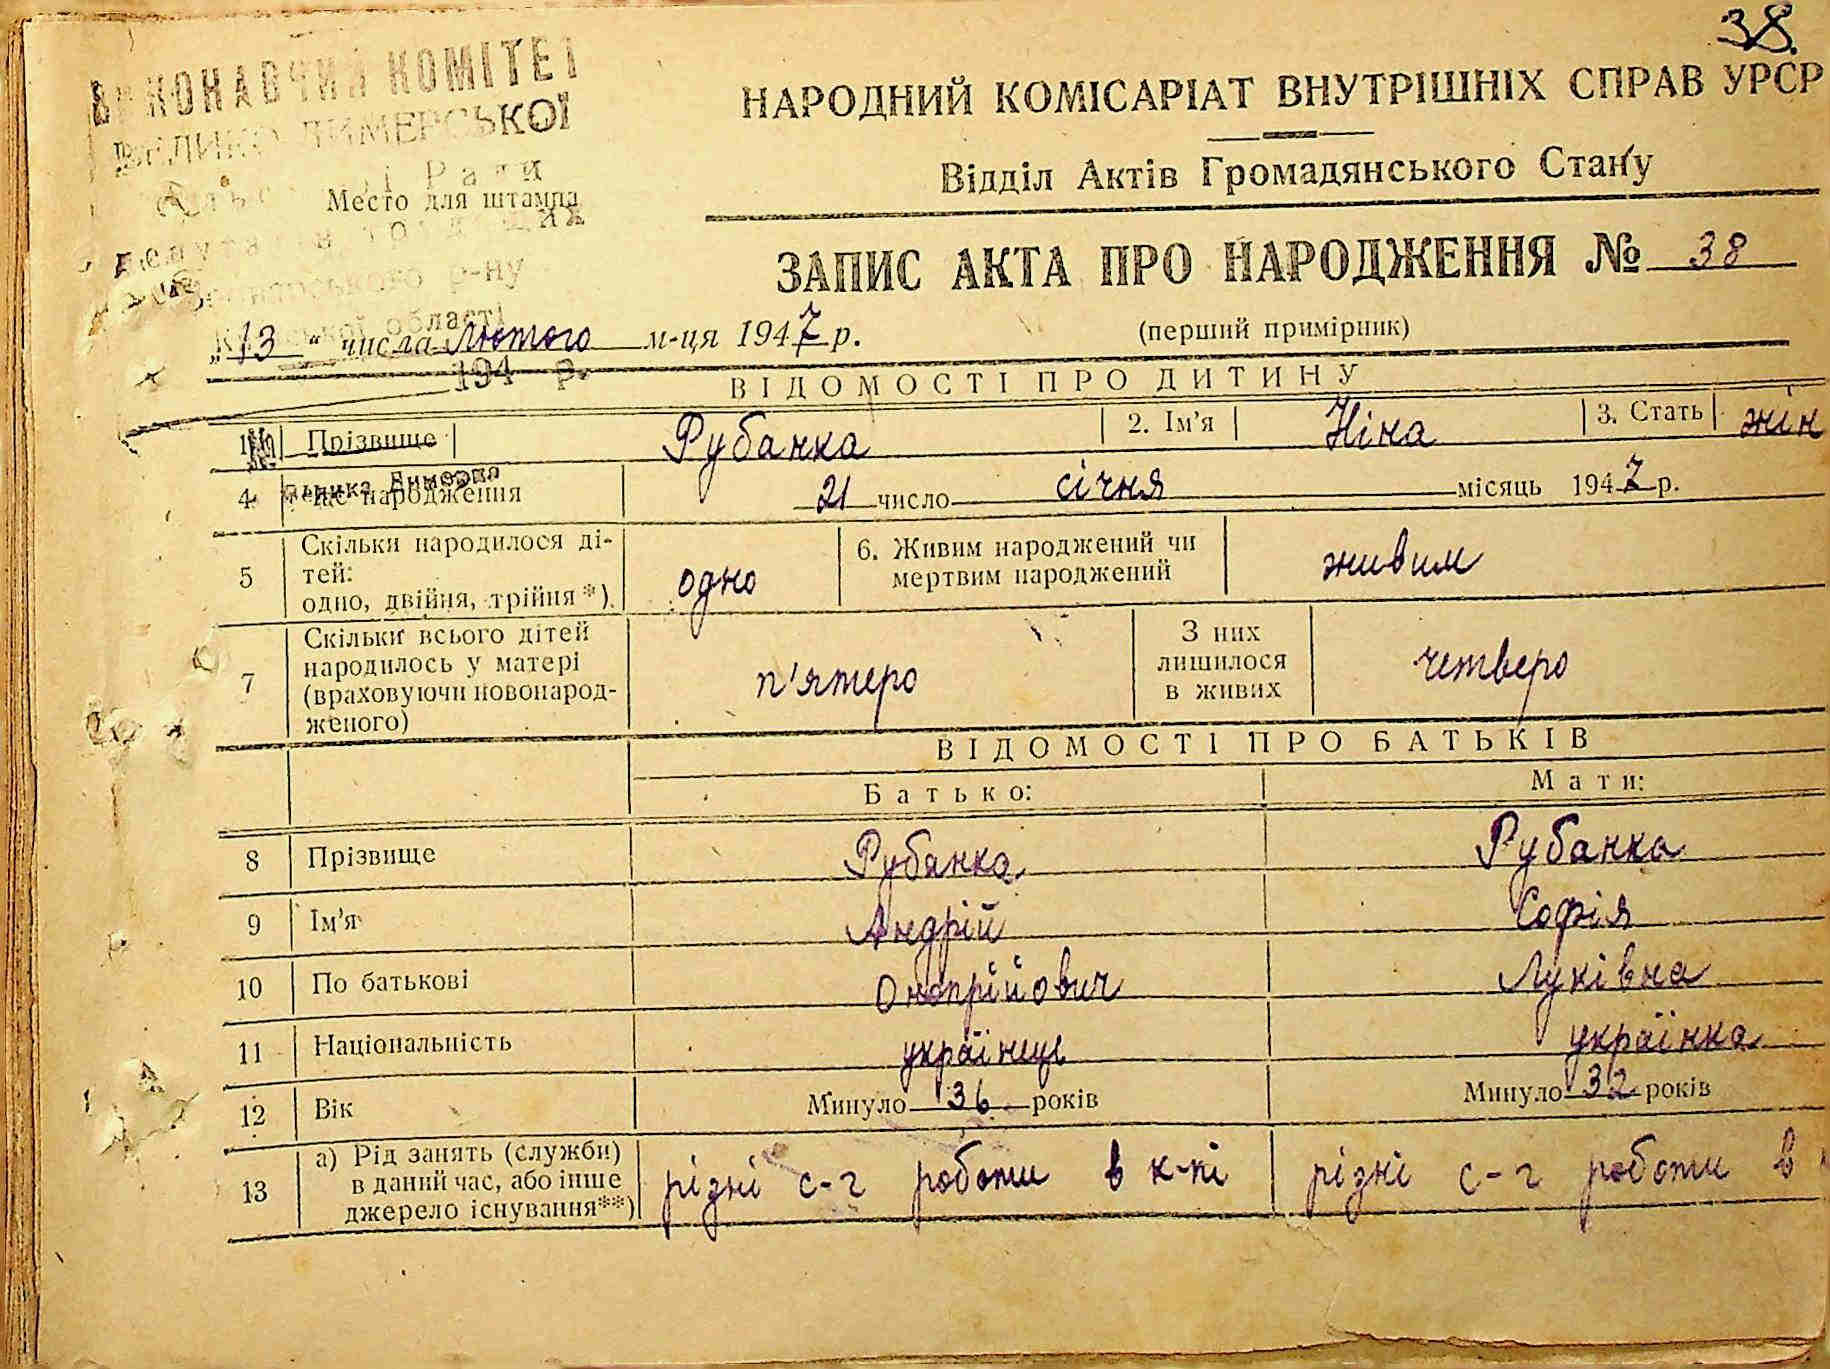 38.
ВИКОНАВЧИЙ КОМІТЕТ
ВЕЛИКО ДИМЕРСЬКОЇ
Ради
Место для штампа
р-ну
області
194 р.
НАРОДНИЙ КОМІСАРІАТ ВНУТРІШНІХ СПРАВ УРСР
Відділ Актів Громадянського Стану
ЗАПИС АКТА ПРО НАРОДЖЕННЯ № 38
„13“ числа лютого м-ця 1947 р. (перший примірник)
ВІДОМОСТІ ПРО ДИТИНУ
1 Прізвище Рубанка 2. Ім'я Ніна 3. Стать жін
4 народження 21 число січня місяць 1947 р.
5 Скільки народилося ді-
тей:
одно, двійня, трійня*)
одно
6. Живим народжений чи
мертвим народжений
живим
7 Скільки всього дітей
народилось у матері
(враховуючи новонарод-
женого)
п'ятеро
З них
лишилося
в живих
четверо
ВІДОМОСТІ ПРО БАТЬКІВ
Батько: Мати:
8 Прізвище Рубанка Рубанка
9 Ім'я Андрій Софія
10 По батькові Онопрійович Луківна
11 Національність українець українка
12 Вік Минуло 36 років Минуло 32 років
13 а) Рід занять (служби)
в даний час, або інше
джерело існування**)
різні с-г роботи в к-пі різні с-г роботи в